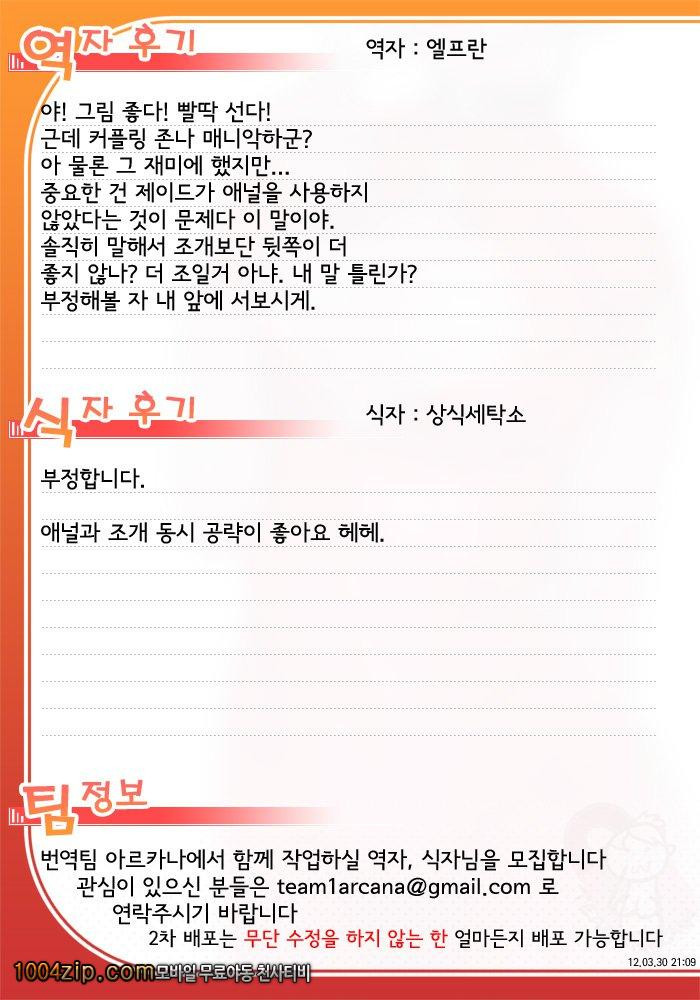 역자 후기
역자 : 엘프란
야! 그림 좋다! 빨딱 선다!
근데 커플링 존나 매니악하군?
아 물론 그 재미에 했지만...
중요한 건 제이드가 애널을 사용하지
않았다는 것이 문제다 이 말이야.
솔직히 말해서 조개보단 뒷쪽이 더
좋지 않나? 더 조일거 아냐. 내 말 틀린가?
부정해볼 자 내 앞에 서보시게.
식자 후기
식자 : 상식세탁소
부정합니다.
애널과 조개 동시 공략이 좋아요 헤헤.
팀정보
번역팀 아르카나에서 함께 작업하실 역자, 식자님을 모집합니다
관심이 있으신 분들은 team1arcana@gmail.com 로
연락주시기 바랍니다
2차 배포는 무단 수정을 하지 않는 한 얼마든지 배포 가능합니다
12.03.30 21:09
1004zip.com모바일무료야동천사티비